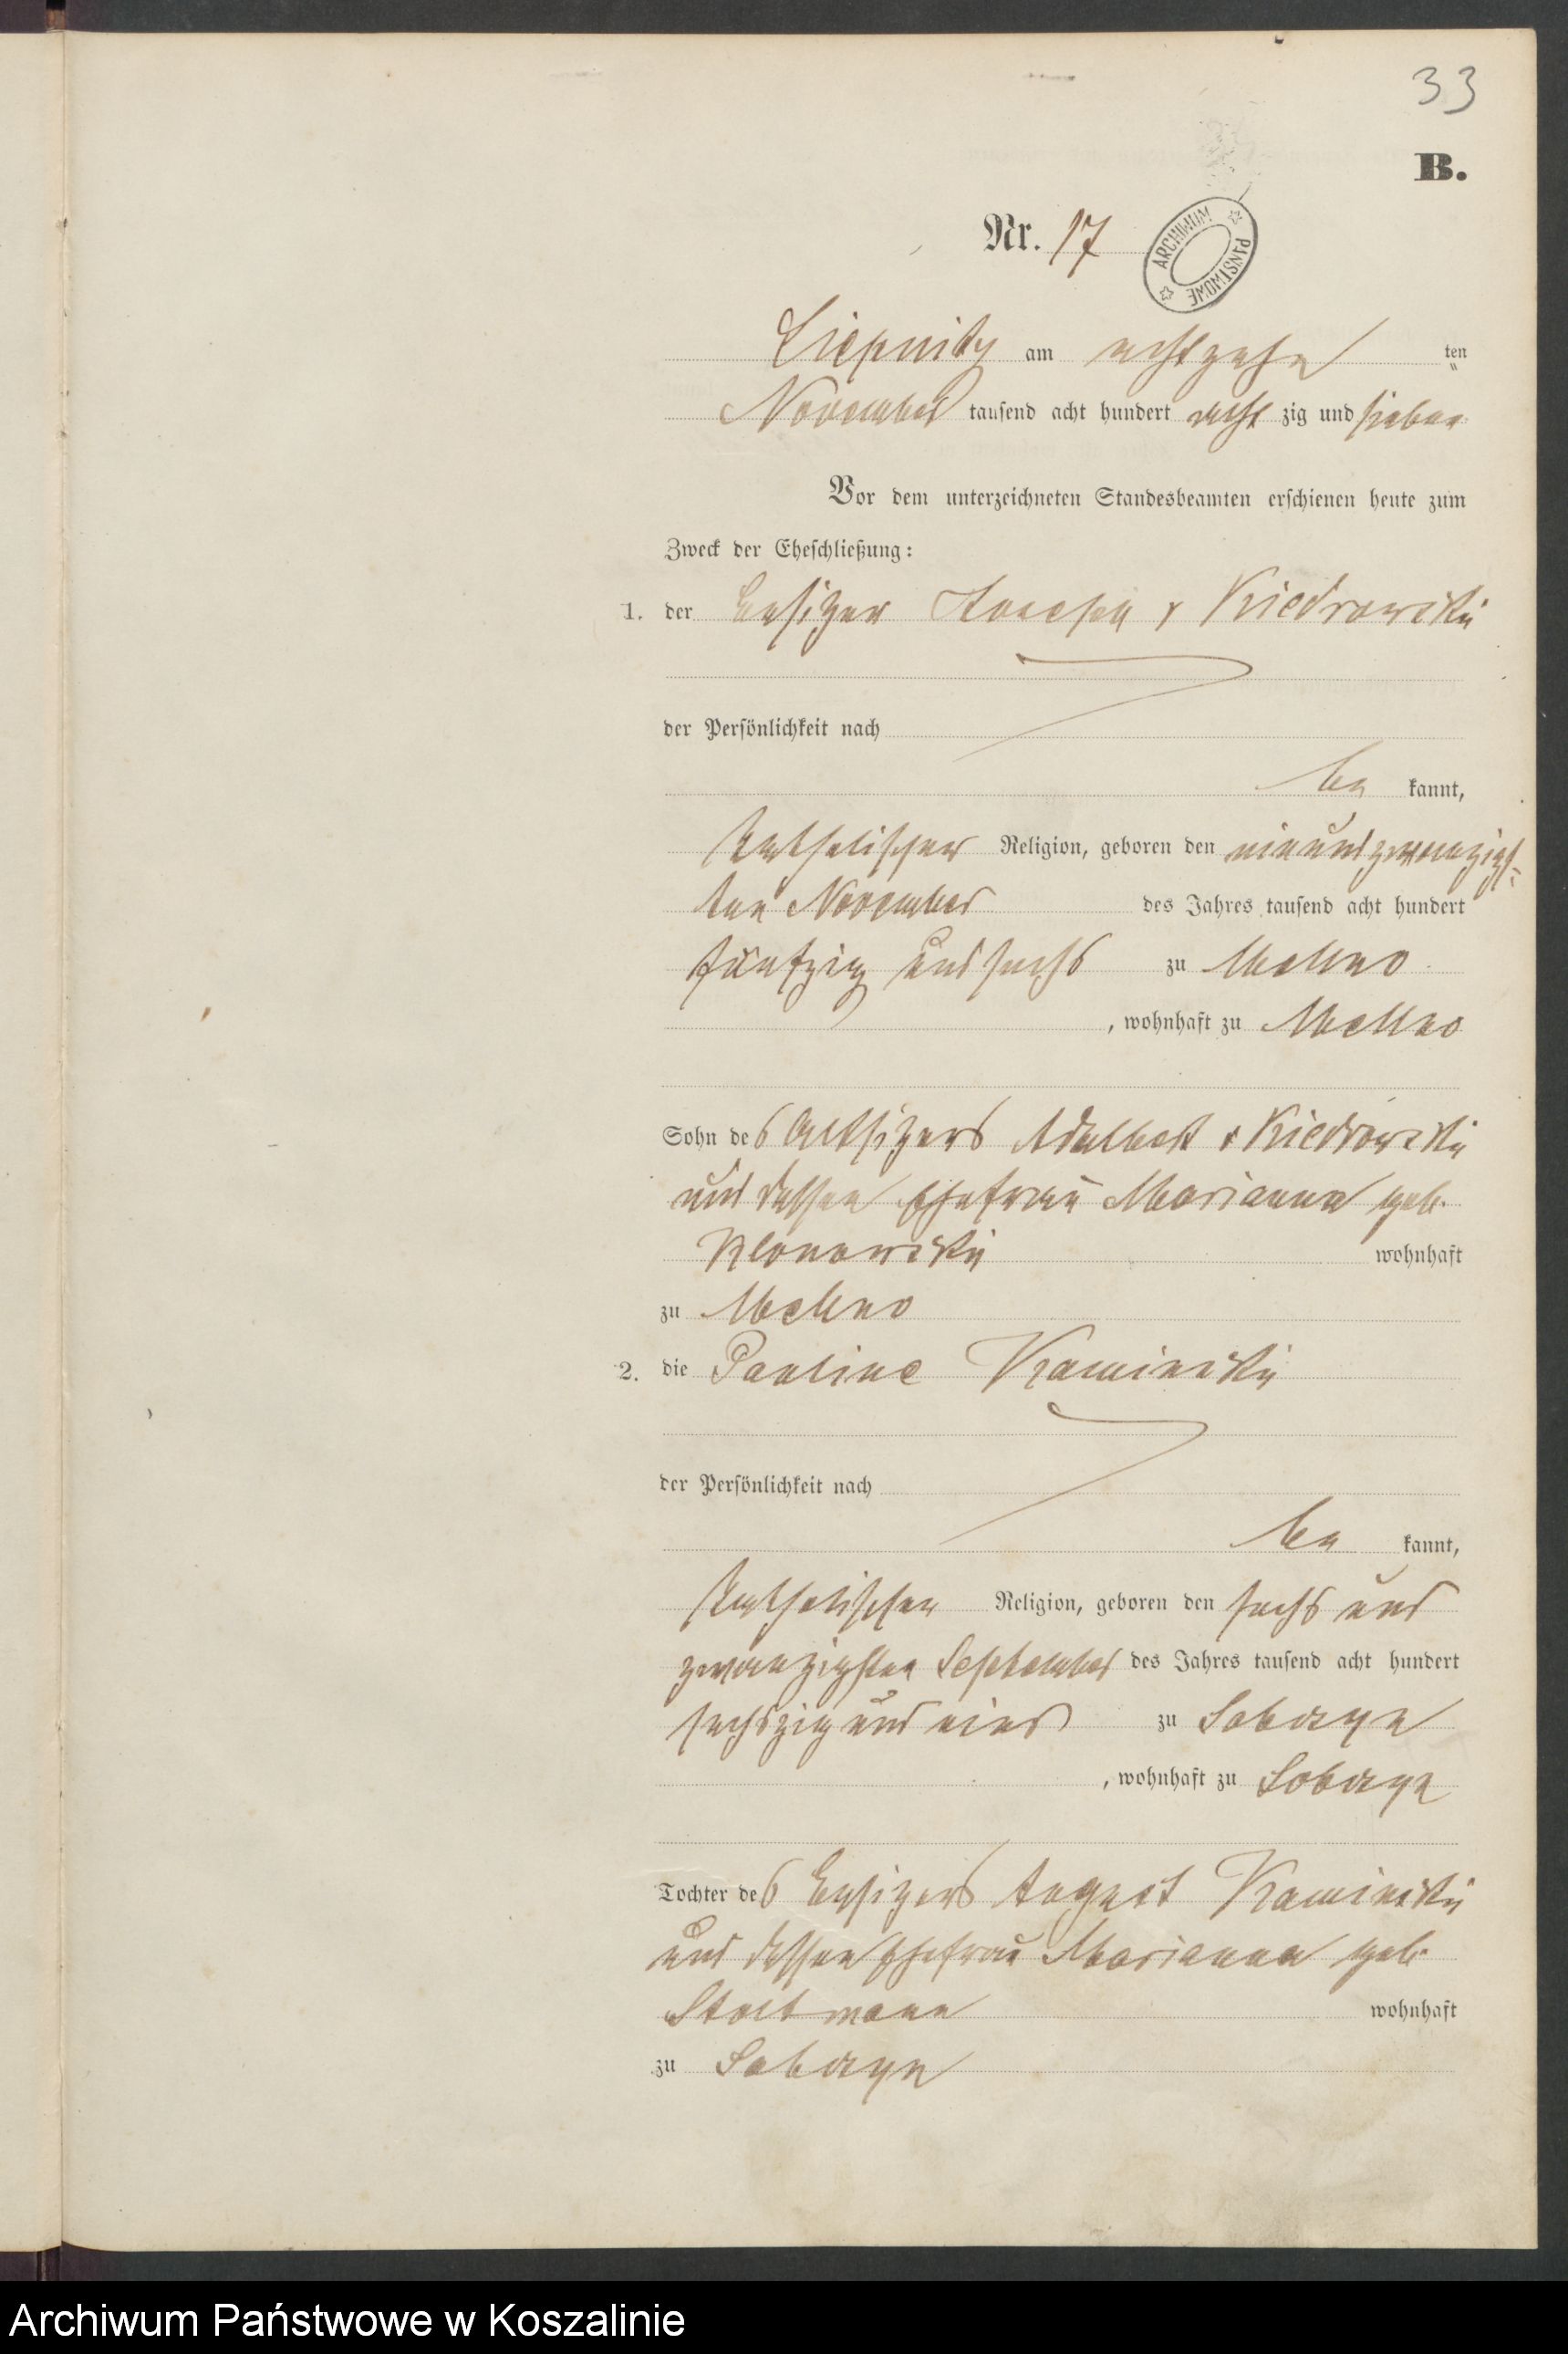 33
B.
Nr. 17
ARCHIWUM PAŃSTWOWE
Liepnitz am achtzehn ten
November tausend acht hundert acht zig und sieben
Vor dem unterzeichneten Standesbeamten erschienen heute zum
Zweck der Eheschließung:
1. der Besitzer Joseph v Kiedrowski
der Persönlichkeit nach
be kannt,
katholischer Religion, geboren den einundzwanzigs-
ten November des Jahres tausend acht hundert
fünfzig und sechs zu Mellno
, wohnhaft zu Mellno
Sohn des Altsitzers Adalbert v Kiedrowski
und dessen Ehefrau Marianna geb.
Klonowski wohnhaft
zu Mellno
2. die Pauline Kaminski
der Persönlichkeit nach
be kannt,
katholischer Religion, geboren den sechs und
zwanzigsten September des Jahres tausend acht hundert
sechszig und eins zu Sobczyn
, wohnhaft zu Sobczyn
Tochter des Besitzers August Kaminski
und dessen Ehefrau Marianna geb.
Stoltmann wohnhaft
zu Sobczyn
Archiwum Państwowe w Koszalinie